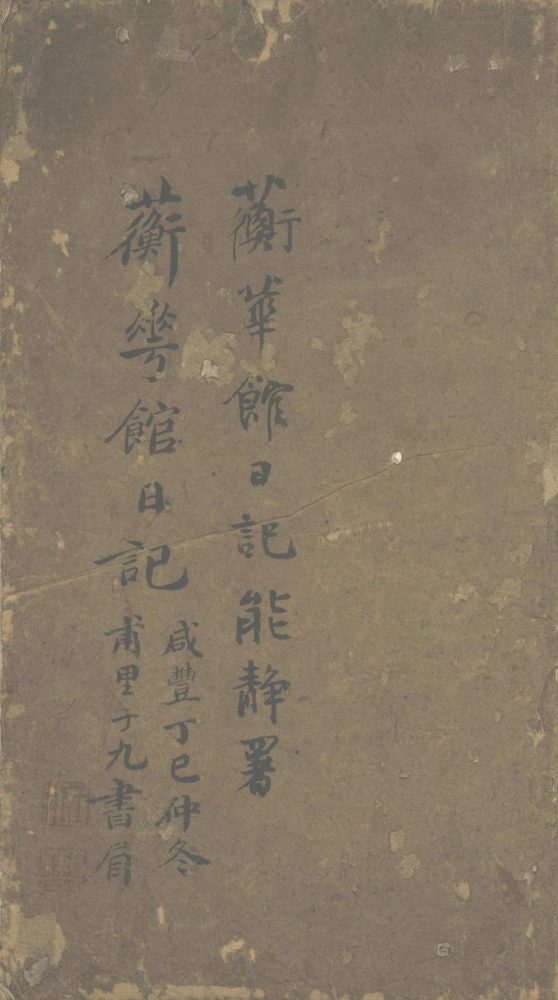 蘅華館日記能静署
蘅蕚館日記
咸豐丁巳仲冬
甫里子九書眉